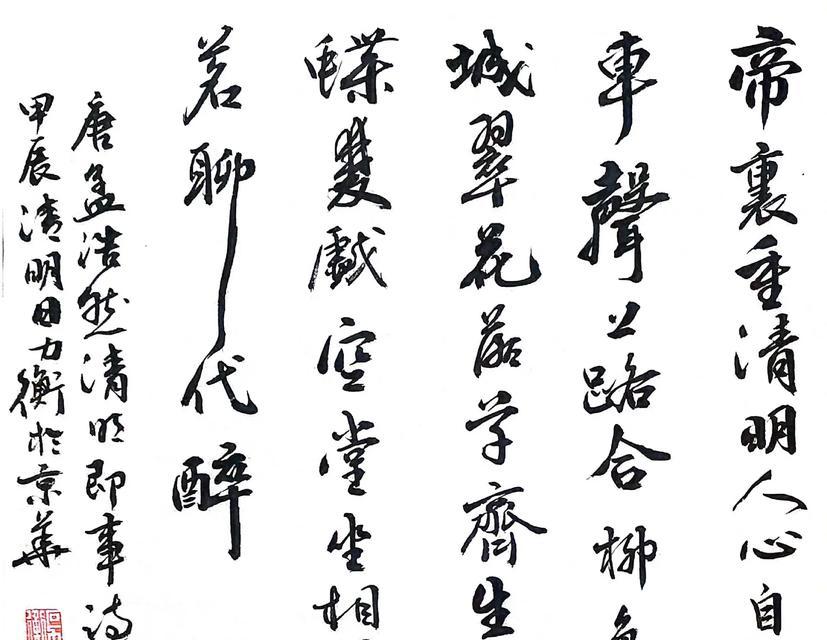 帝裏重清明人心自
車聲上路合柳
城翠花落草齊生
蝶雙戲空堂坐相
茗聊代醉
唐孟浩然清明即事詩
甲辰清明日力衡於京華